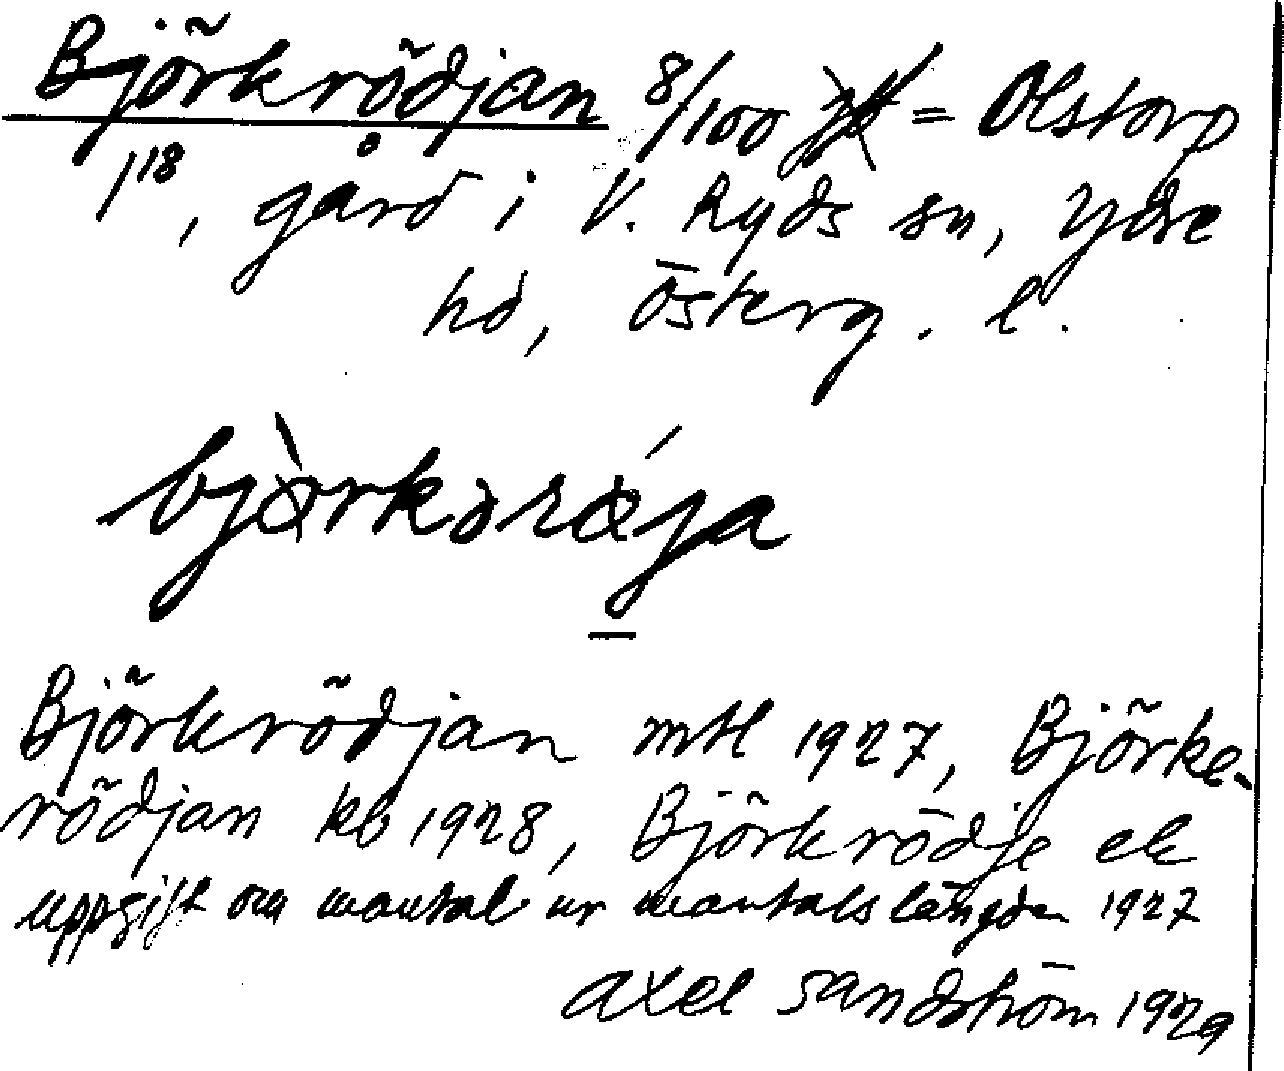 Björkrödjan 8/100 = Olstorp
1 18, gård i V. Ryds sn, Ydre
hd, Österg. l.
björkarö́ja
Björkrödjan mtl 1927, Björke-
rödjan kb 1928, Björkrödje ek
uppgift om mantal ur mantalslängden 1927
Axel Sandström 1929